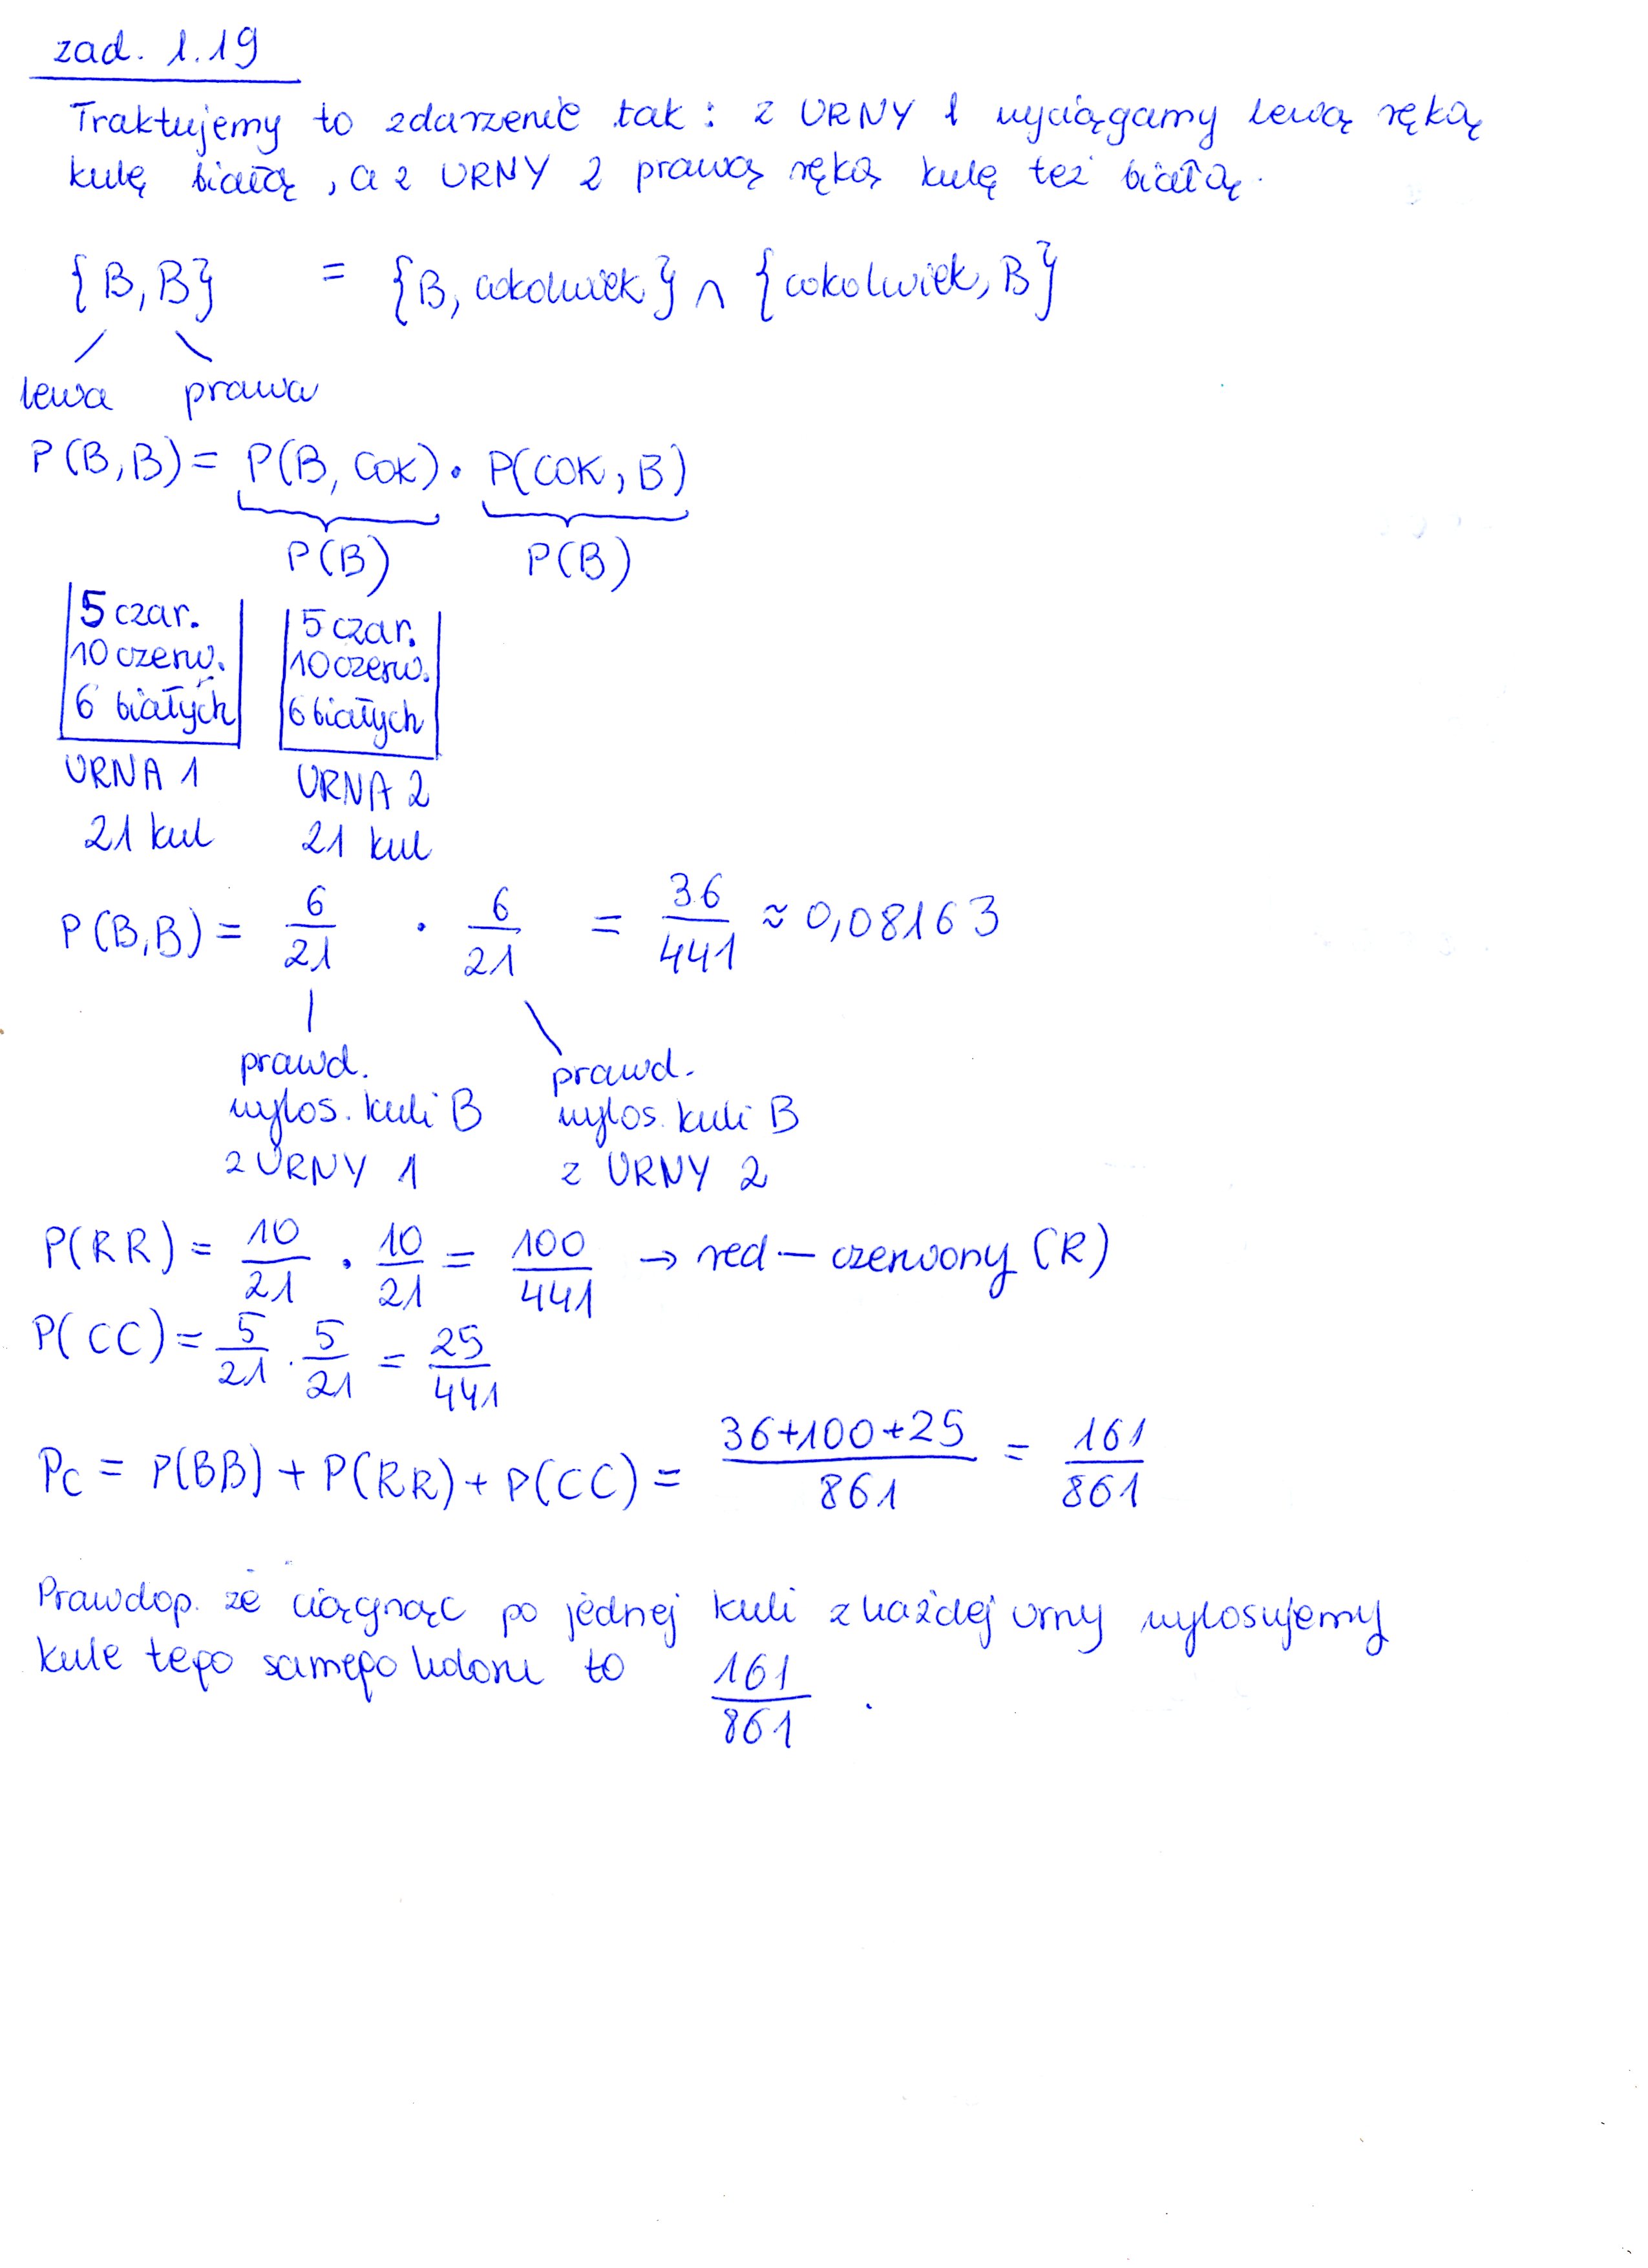 zad. 1.19
Traktujemy to zdarzenie tak: z URNY 1 wyciągamy lewą ręką
kulę białą, a z URNY 2 prawą ręką kulę też białą.
{B, B} = {B, cokolwiek} ∩ {cokolwiek, B}
lewa prawa
P(B,B) = P(B, COK) · P(COK, B)
P(B) P(B)
5 czar. 5 czar.
10 czerw. 10 czerw.
6 białych 6 białych
URNA 1 URNA 2
21 kul 21 kul
P(B,B) = 6/21 · 6/21 = 36/441 ≈ 0,08163
prawd. prawd.
wylos. kuli B wylos. kuli B
z URNY 1 z URNY 2
P(RR) = 10/21 · 10/21 = 100/441 → red – czerwony (R)
P(CC) = 5/21 · 5/21 = 25/441
Pc = P(BB) + P(RR) + P(CC) = 36+100+25/861 = 161/861
Prawdop. że ciągnąc po jednej kuli z każdej urny wylosujemy
kule tego samego koloru to 161/861.